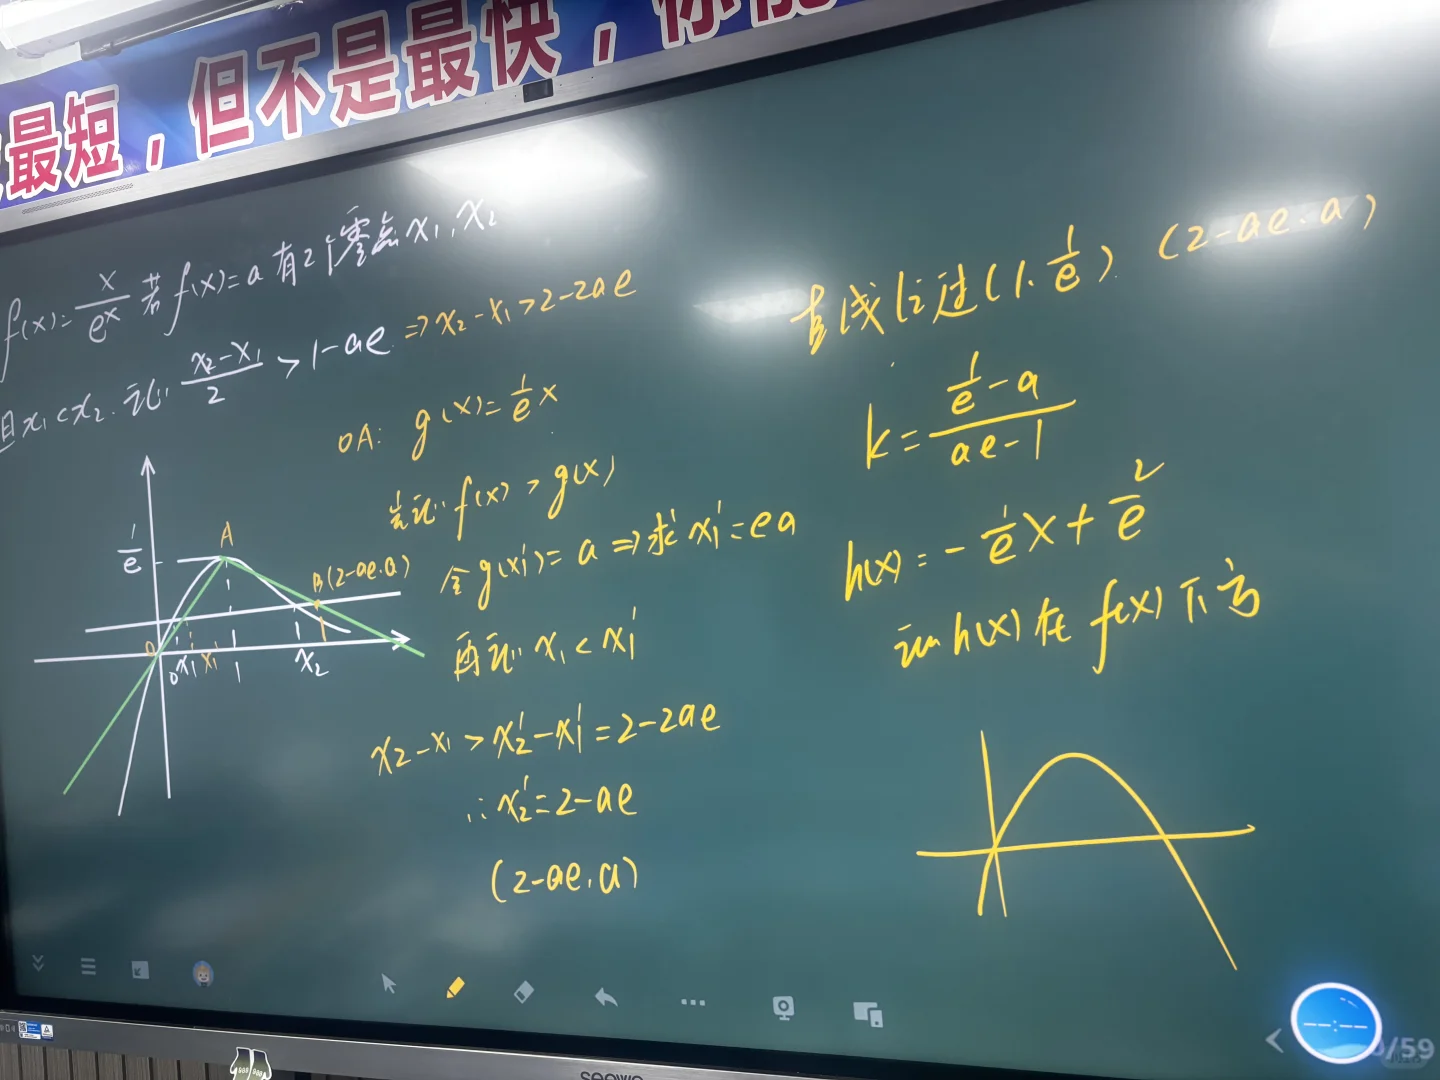 最短，但不是最快，你能
f(x)=x/e^x 若f(x)=a有2个零点x₁,x₂
且x₁<x₂.证: (x₂-x₁)/2 >1-ae ⇒x₂-x₁>2-2ae
OA: g(x)=1/e x
去证: f(x)>g(x)
令g(x₁')=a ⇒求x₁'=ea
再证: x₁<x₁'
x₂-x₁>x₂'-x₁'=2-2ae
∴x₂'=2-ae
(2-ae.a)
1/e
A
B(2-ae.a)
0
x₁
x₁'
1
x₂
直线l₂过(1.1/e) (2-ae.a)
k=(1/e-a)/(ae-1)
h(x)=-1/e x+2/e
证h(x)在f(x)下方
/59
seewo